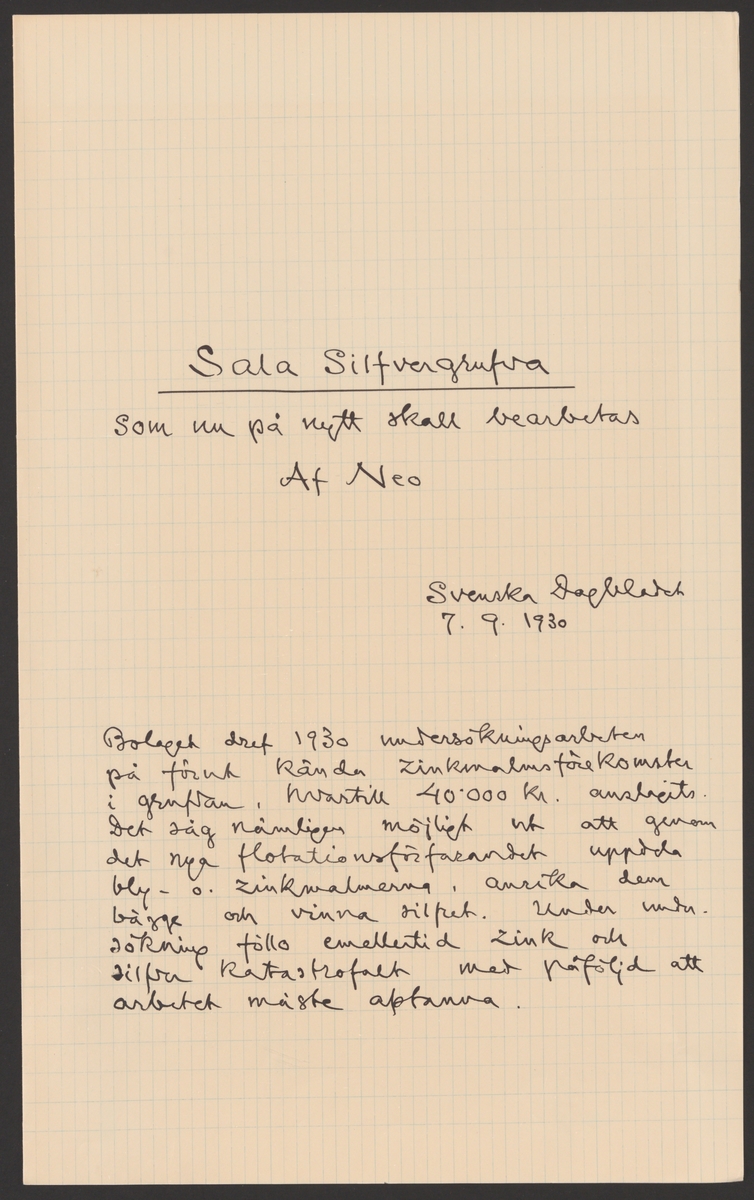 Sala Silfvergrufva
som nu på nytt skall bearbetas
Af Neo
Svenska Dagbladet
7. 9. 1930
Bolaget dref 1930 undersökningsarbeten
på förut kända zinkmalmsförekomster
i grufvan, hvartill 40.000 Kr. anslagits.
Det såg nämligen möjligt ut att genom
det nya flotationsförfarandet uppdela
bly- o. zinkmalmerna, anrika dem
bägge och vinna silfret. Under under-
sökning föllo emellertid zink och
silfver katastrofalt med påföljd att
arbetet måste afstanna.